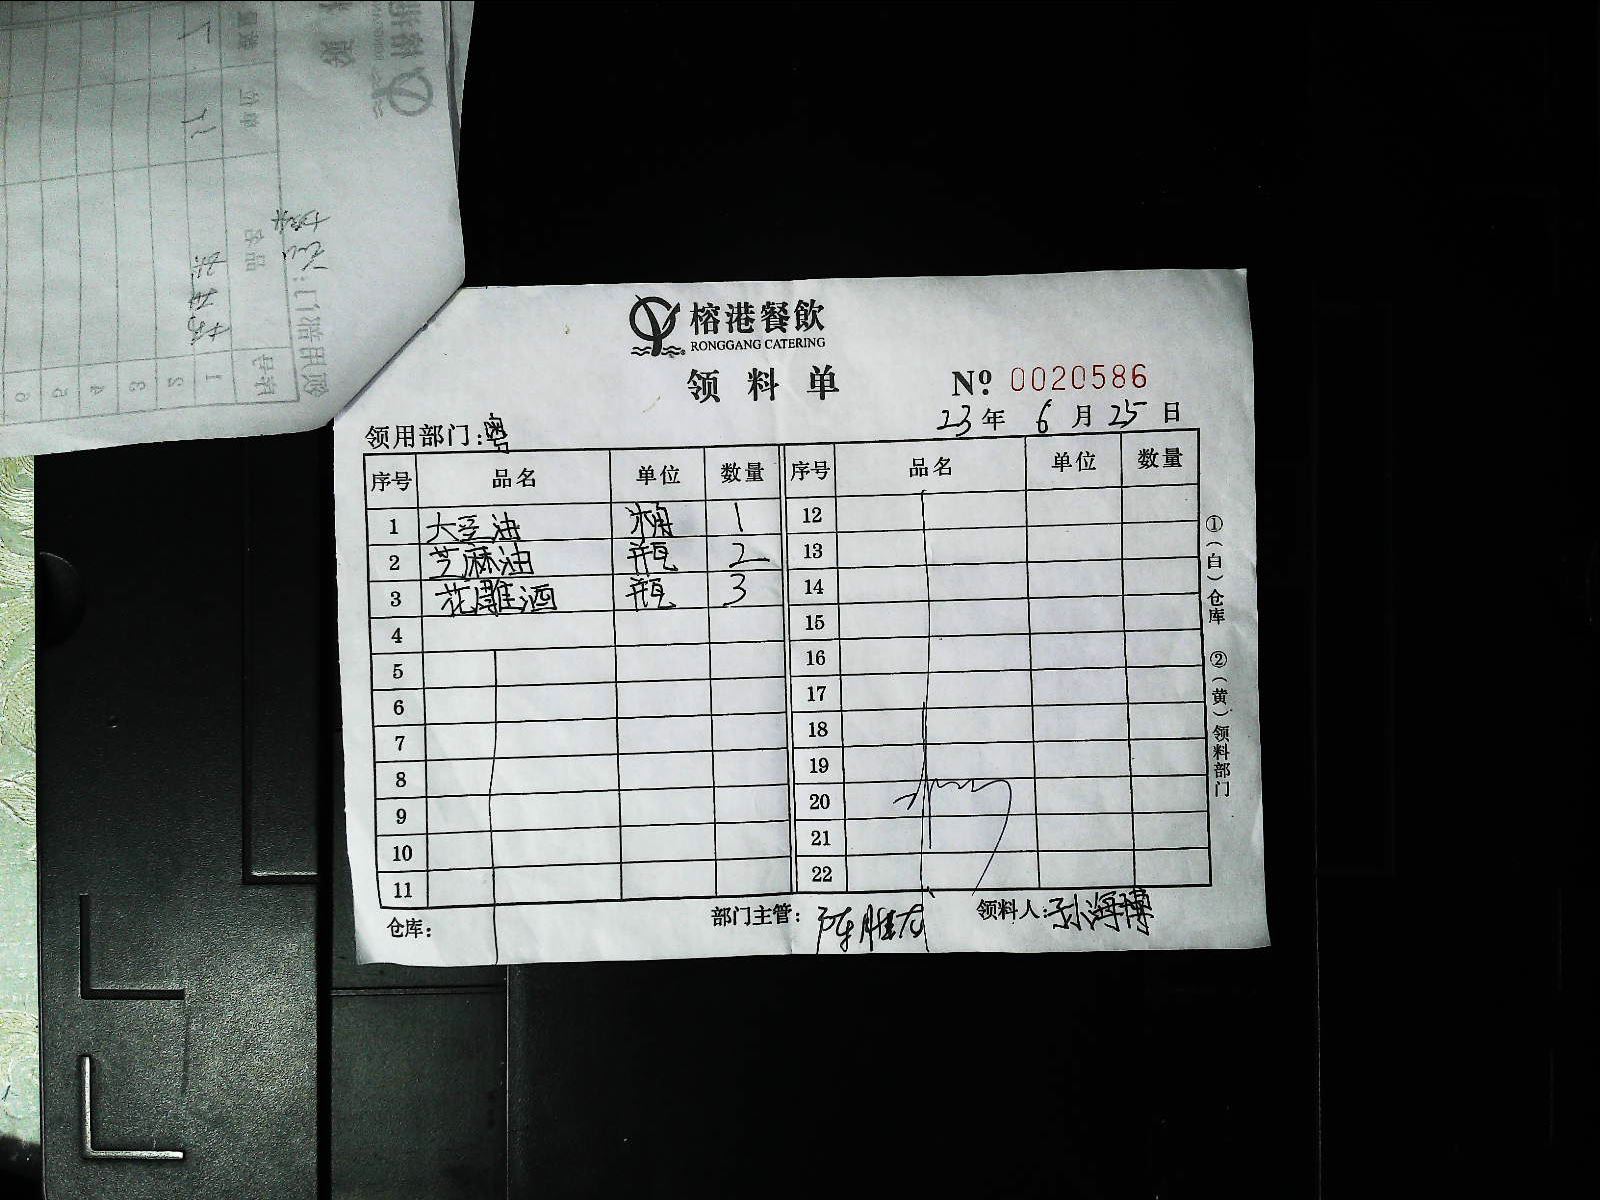 榕港餐飲
RONGGANG CATERING
领料单
Nº 0020586
领用部门:粤
23年 6月 25日
序号 品名 单位 数量 序号 品名 单位 数量
1 大豆油 桶 1 12
2 芝麻油 瓶 2 13
3 花雕酒 瓶 3 14
4 15
5 16
6 17
7 18
8 19
9 20
10 21
11 22
仓库: 部门主管: 陈胜友 领料人:孙海博
①(白)仓库 ②(黄)领料部门